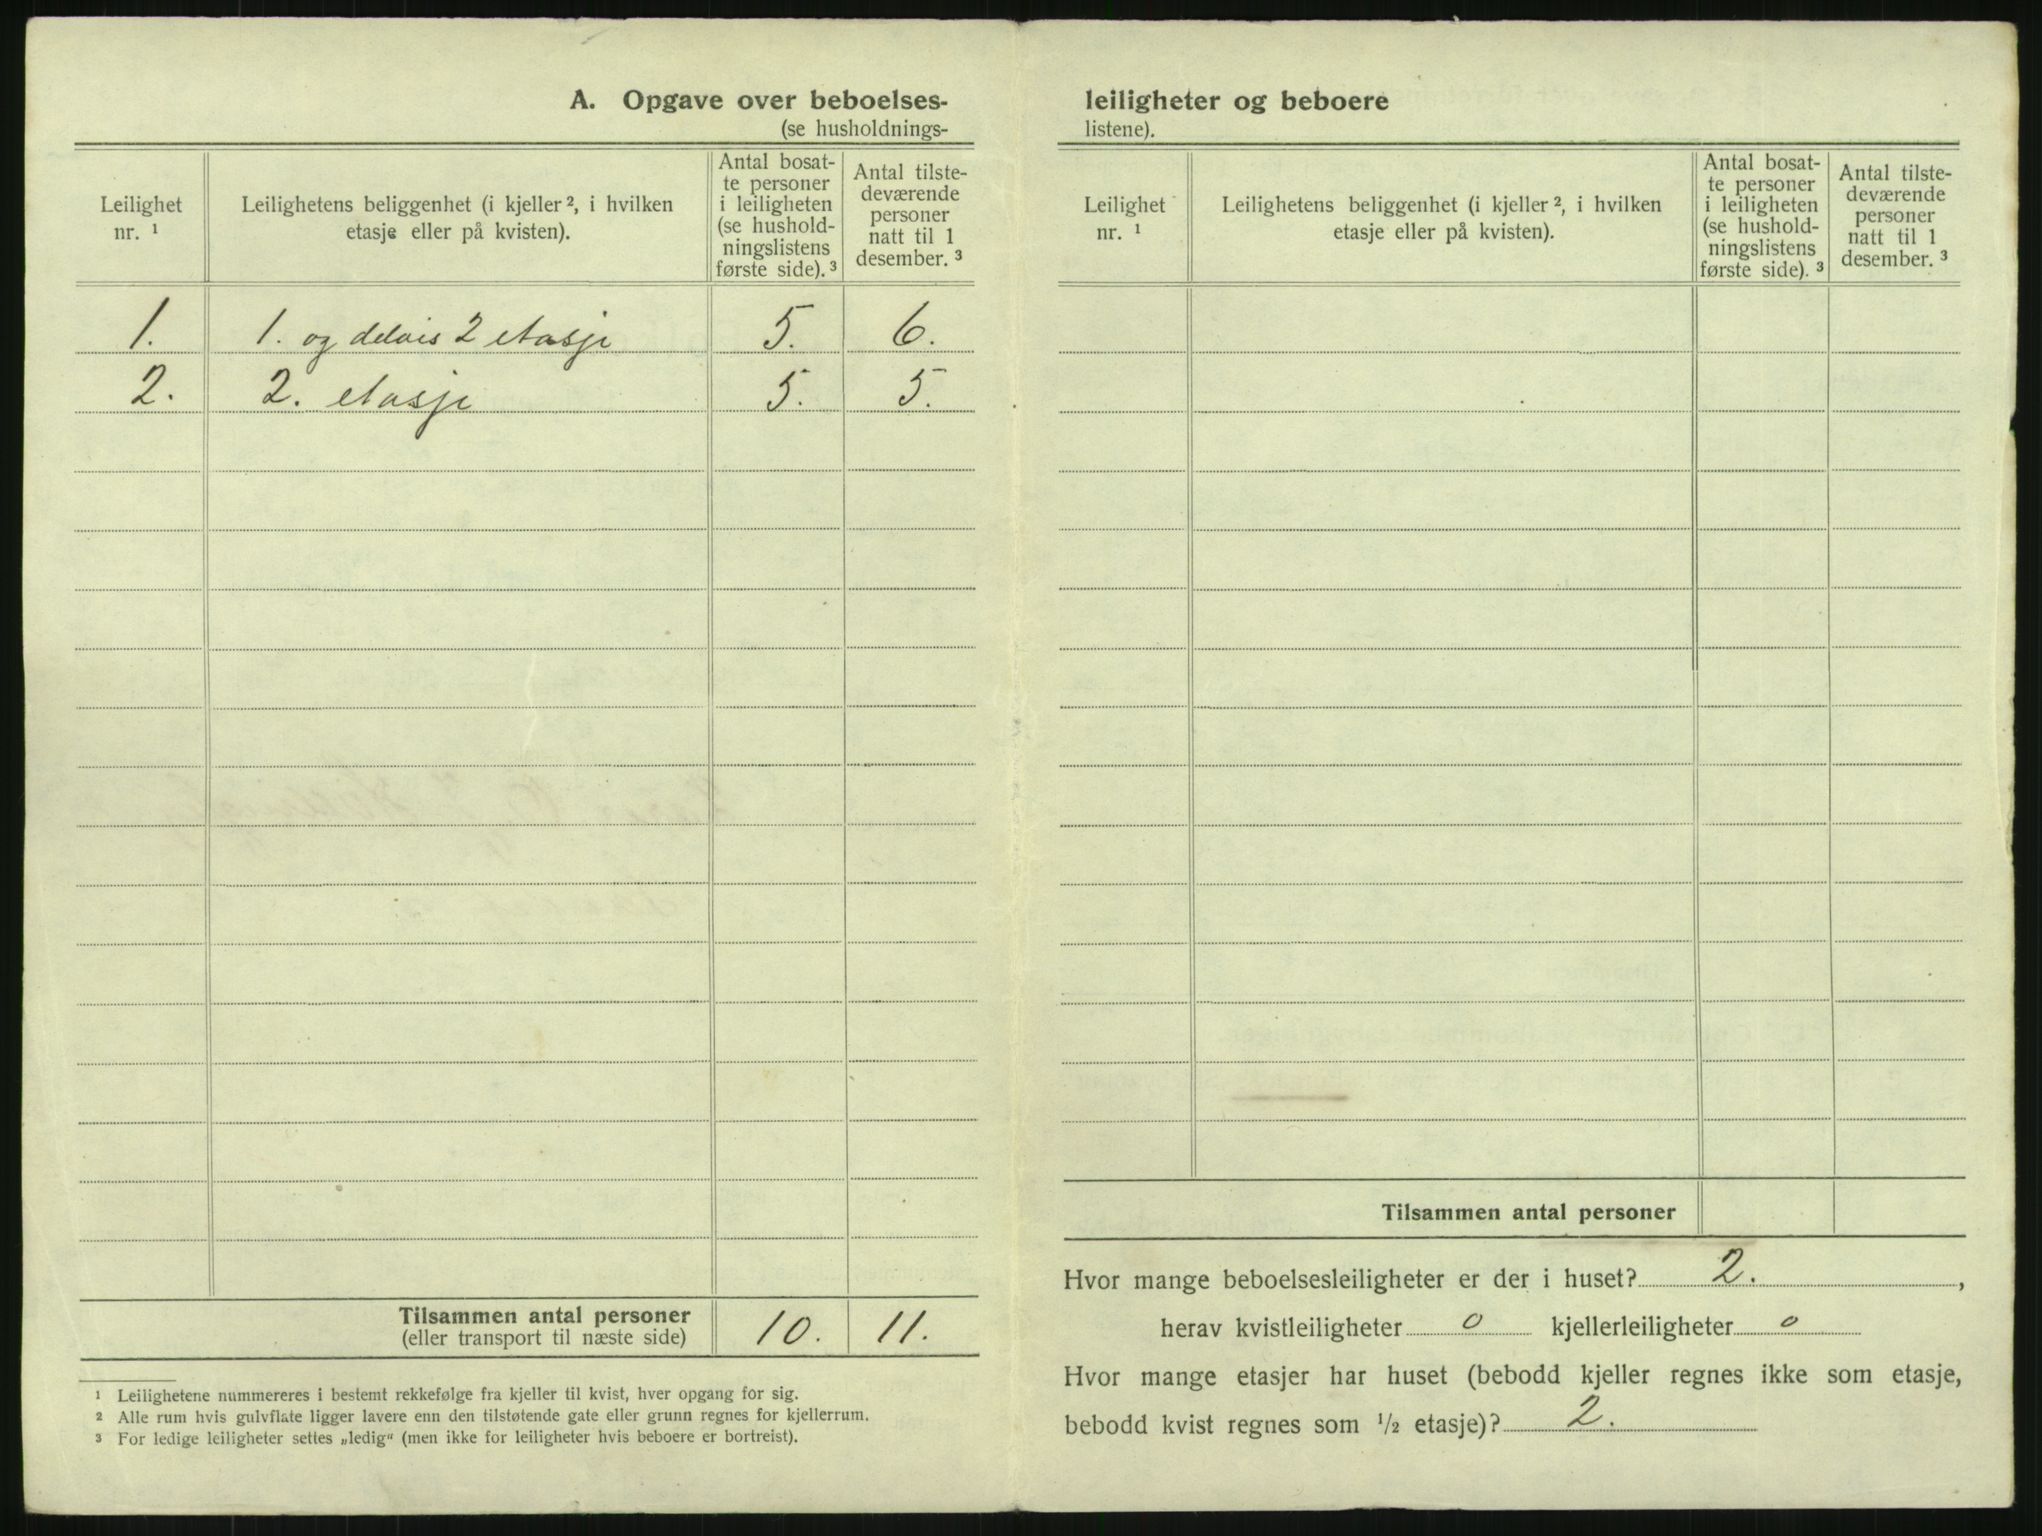 A. Opgave over beboelses-
(se husholdnings-
Leilighet nr. ¹
Leilighetens beliggenhet (i kjeller ², i hvilken etasje eller på kvisten).
Antal bosat-
te personer
i leiligheten
(se hushold-
ningslistens
første side). ³
Antal tilste-
deværende
personer
natt til 1
desember. ³
1. 1. og delvis 2 etasje 5. 6.
2. 2. etasje 5. 5.
Tilsammen antal personer
(eller transport til næste side) 10. 11.
¹ Leilighetene nummereres i bestemt rekkefølge fra kjeller til kvist, hver opgang for sig.
² Alle rum hvis gulvflate ligger lavere enn den tilstøtende gate eller grunn regnes for kjellerrum.
³ For ledige leiligheter settes „ledig“ (men ikke for leiligheter hvis beboere er bortreist).
leiligheter og beboere
listene).
Leilighet nr. ¹
Leilighetens beliggenhet (i kjeller ², i hvilken etasje eller på kvisten).
Antal bosat-
te personer
i leiligheten
(se hushold-
ningslistens
første side). ³
Antal tilste-
deværende
personer
natt til 1
desember. ³
Tilsammen antal personer
Hvor mange beboelsesleiligheter er der i huset? 2. ,
herav kvistleiligheter 0 kjellerleiligheter 0
Hvor mange etasjer har huset (bebodd kjeller regnes ikke som etasje,
bebodd kvist regnes som ½ etasje)? 2.